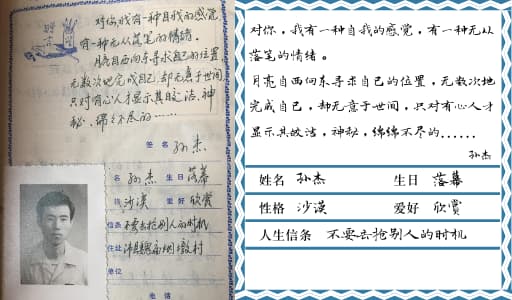 对你,我有一种自我的感觉,
有一种无从落笔的情绪。
月亮自西向东寻求自己的位置,
无数次地完成自己,却无意于世间,
只对有心人才显示其故洁,神
秘,绵绵不尽的……
签名 孙杰
名 孙杰 生日 落幕
性格 沙漠 爱好 欣赏
信条 不要去抢别人的时机
住址
单位
电话
对你,我有一种自我的感觉,有一种无从
落笔的情绪。
月亮自西向东寻求自己的位置,无数次地
完成自己,却无意于世间,只对有心人才
显示其故洁,神秘,绵绵不尽的......
孙杰
姓名 孙杰 生日 落幕
性格 沙漠 爱好 欣赏
人生信条 不要去抢别人的时机